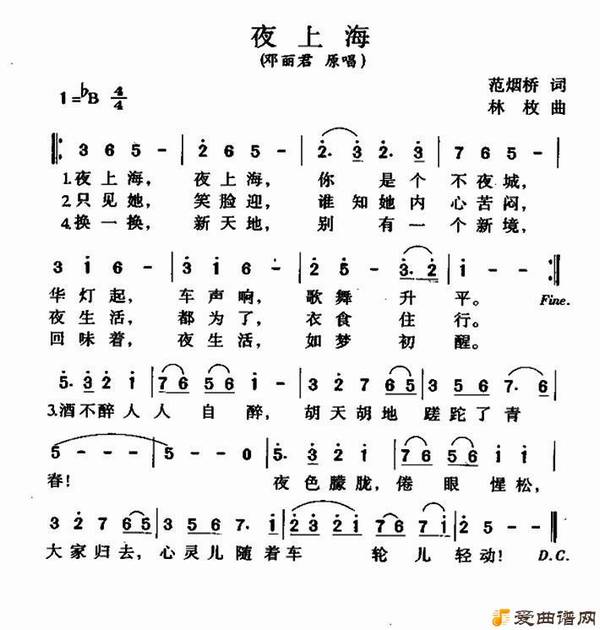 夜上海
(邓丽君 原唱)
1=♭B 4/4
范烟桥 词
林枚 曲
3 6 5 - | 2 6 5 - | 2· 3 2· 3 | 7 6 5 - |
1.夜上海, 夜上海, 你 是个 不夜城,
2.只见她, 笑脸迎, 谁知她内 心苦闷,
4.换一换, 新天地, 别 有一 个新境,
3 1 6 - | 3 1 6 - | 2 5 - 3·2 | 1 - - :|
华灯起, 车声响, 歌舞 升 平。 Fine.
夜生活, 都为了, 衣食 住 行。
回味着, 夜生活, 如梦 初 醒。
5· 3 2 1 | 1 7 6 5 6 1 | 3 2 1 2 3 5 6 | 7· 6 5 6 1
3.酒不醉人人 自 醉, 胡天胡地 蹉跎了青
5 - - - | 5 - - 0 | 5· 3 2 1 | 7 6 5 6 1 1
春! 夜色朦胧, 倦 眼 惺松,
3 2 7 2 6 5 | 5 2 1 2 3 2 1 | 1 7 6 5 6 2 1
大家归去, 心灵儿随着车 轮 儿 轻动! D.C.
爱曲谱网